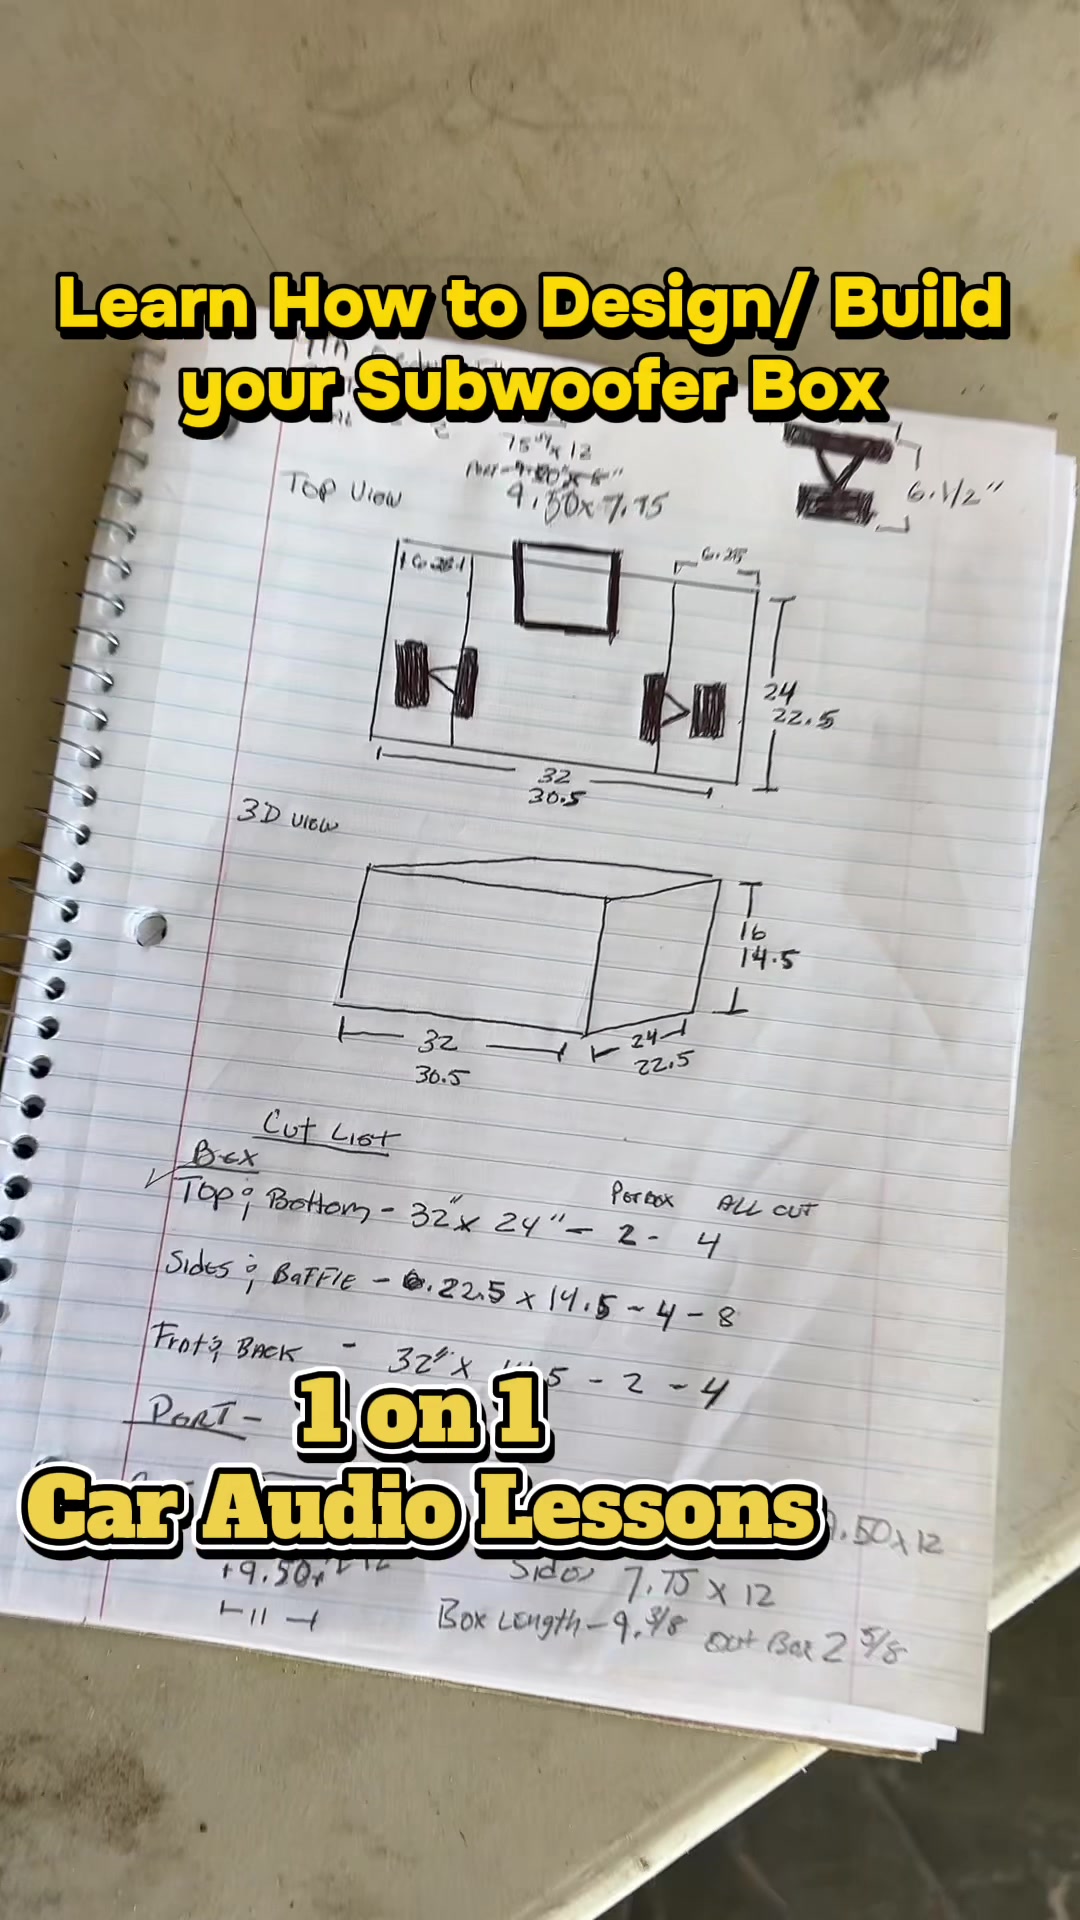 Learn How to Design/ Build
your Subwoofer Box
75 x 12
9.50 x 7.75
Top View
6.1/2"
6.25
24
22.5
32
30.5
3D view
16
14.5
32
30.5
24
22.5
Cut List
Box
Per box ALL CUT
Top & Bottom - 32" x 24" - 2 - 4
Sides & Baffle - 22.5 x 14.5 - 4 - 8
Frot & BACK - 32" x 5 - 2 - 4
PORT -
1 on 1
Car Audio Lessons
.50 x 12
+9.50
11
Sides 7.75 x 12
Box Length - 9.3/8 out Box 2 5/8